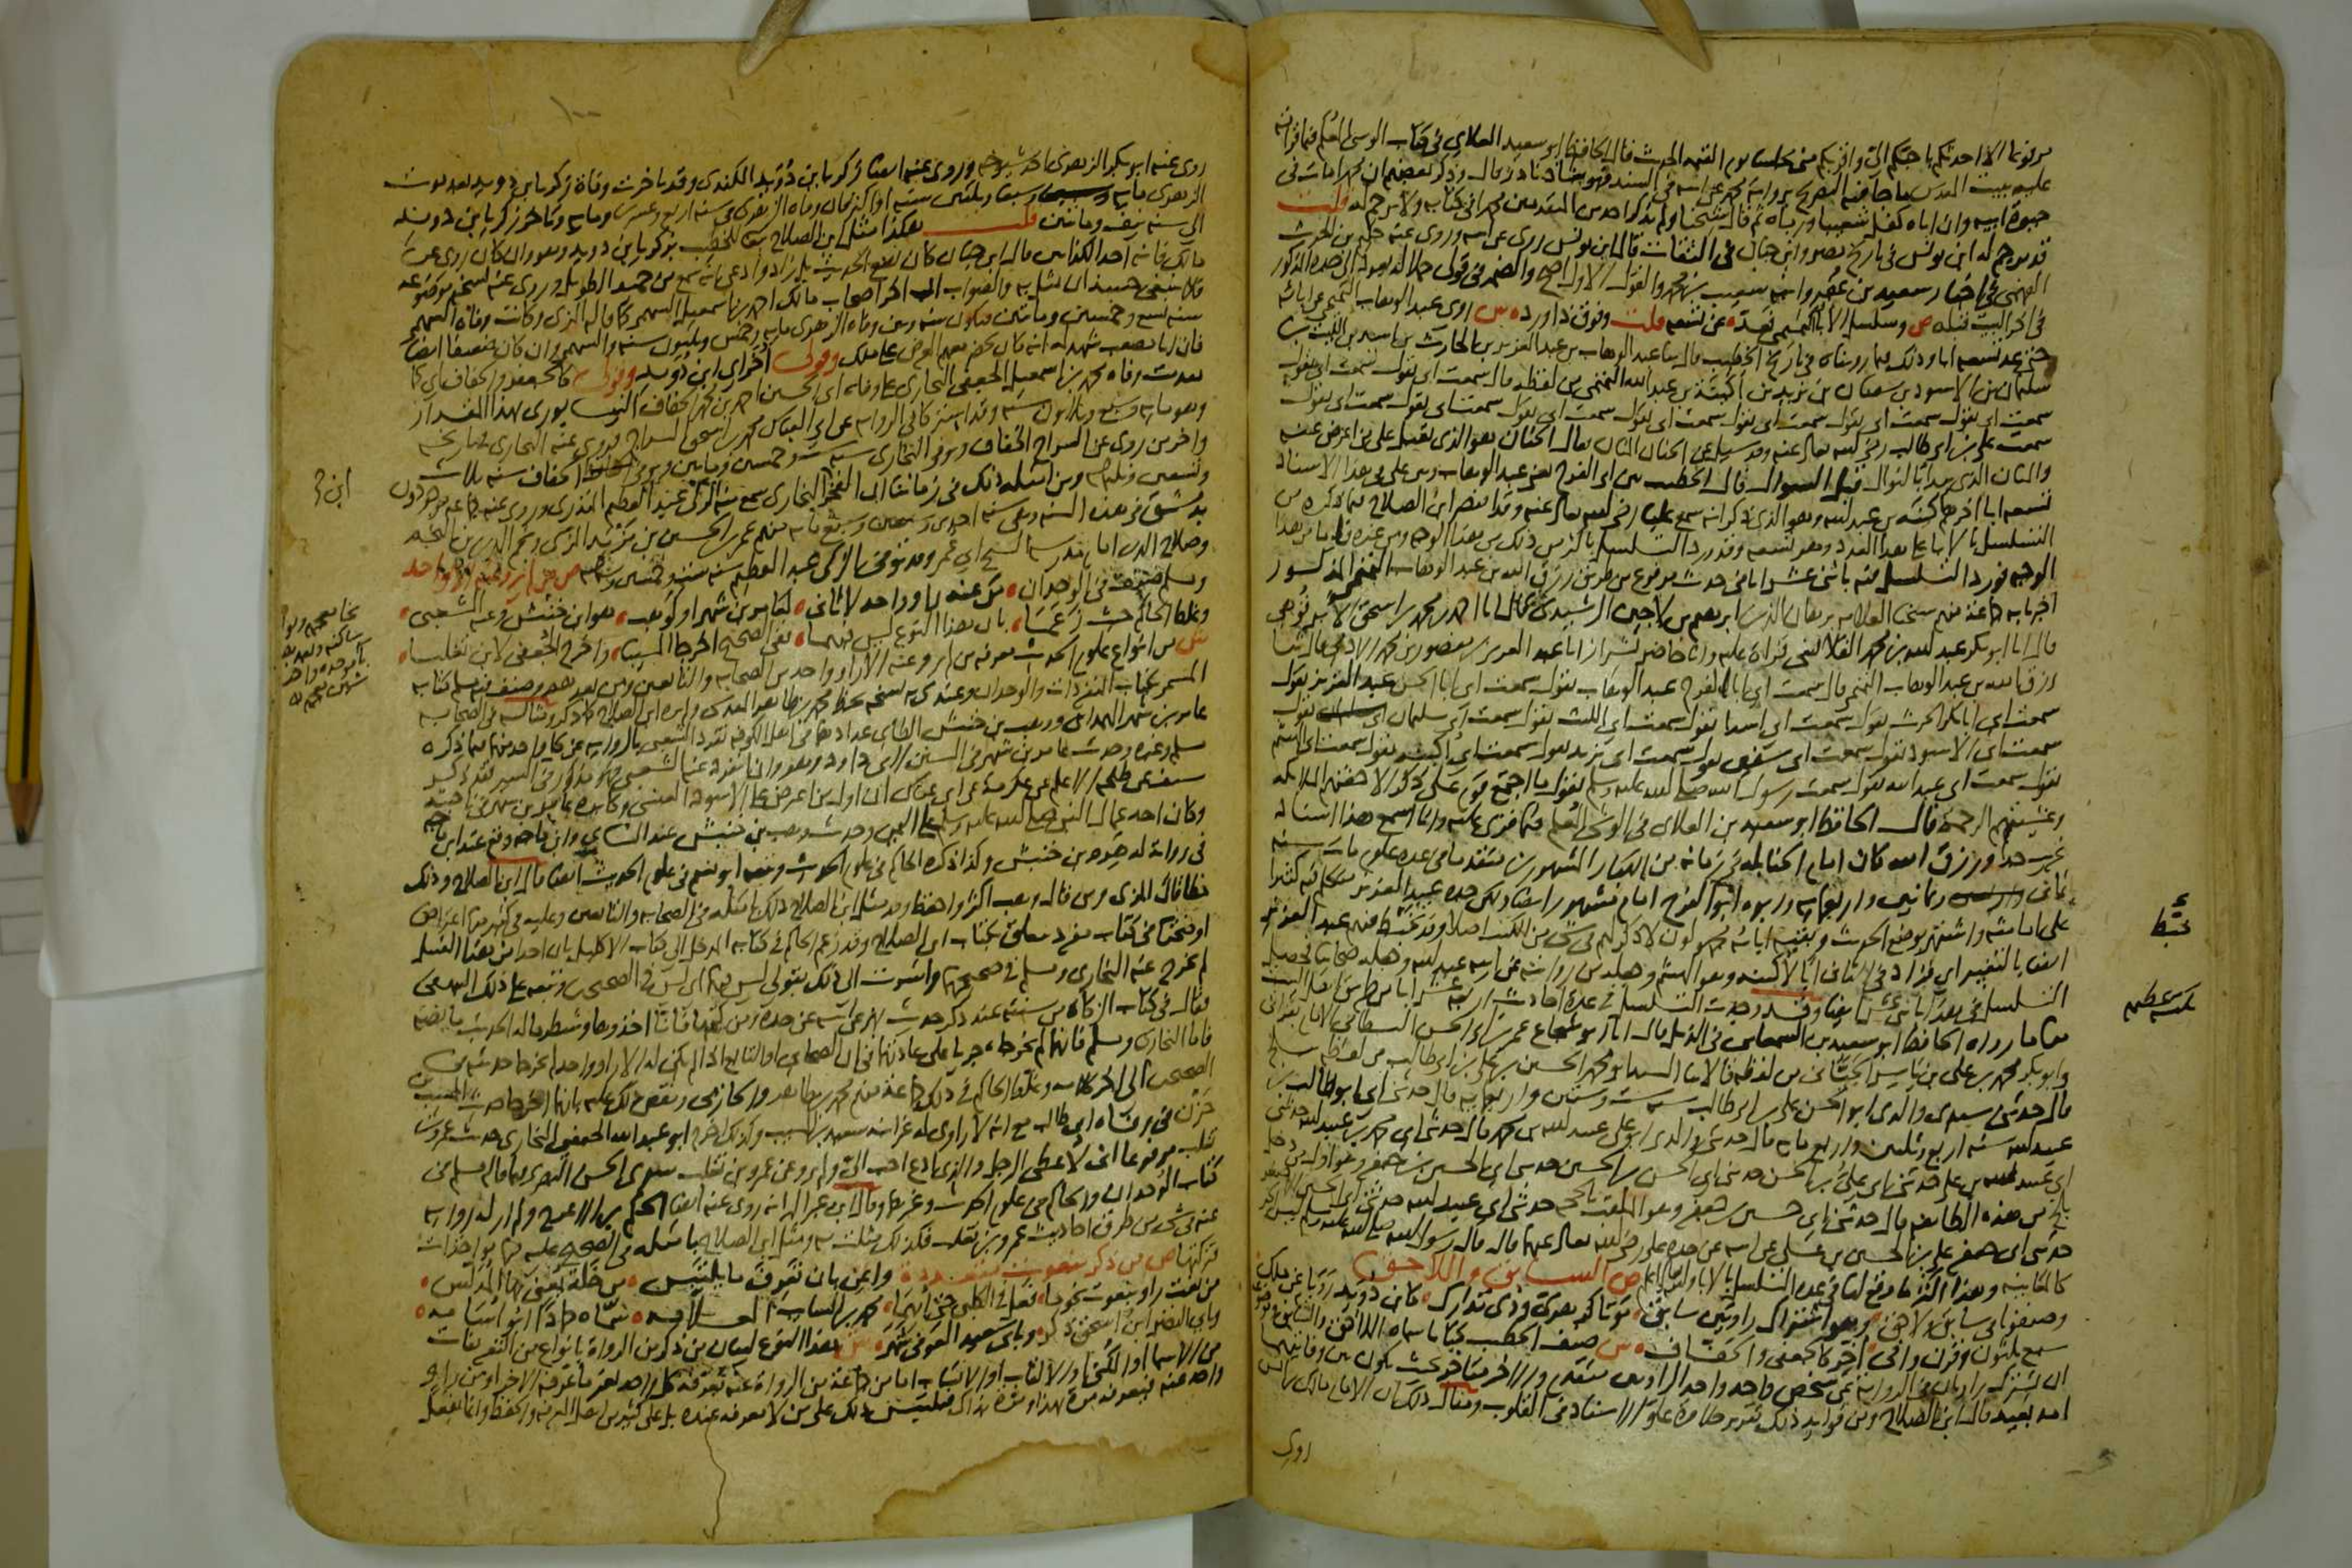 مرفوعا الا احدثكم باحبكم الي واقربكم مني مجلسا يوم القيمة الحديث قال الحافظ ابو سعيد العلاي في كتاب الوشي المعلم فيما قرأته
عليه ببيت المقدس ما جا فيه التصريح برواية محمد عن ابيه في السند فهو شاذ نادر قال وذكر بعضهم ان محمدا مات في
حيوة ابيه وان اباه كفل شعيبا ورباه ثم قال شيخنا ولم يذكر احد من المتقدمين محمدا في كتابه ولا ترجم له قلت
قد ترجم له ابن يونس في تاريخ مصر وابن حبان في الثقات قال ابن يونس روى عن ابيه وروى عنه حكيم بن الحرث
الفهمي في اخبار سعيد بن عفير وابنه شعيب بن محمد والقول الاول اصح والضمير في قولي حملا له يعود الى جده المذكور
في اخر البيت قبله ص وسلسل الابا التميمي فعد عن تسعة قلت وفوق ذا ورد ش روى عبد الوهاب التميمي عن ابائه
حتى عد تسعة ابا وذلك فيما رويناه في تاريخ الخطيب قال ثنا عبد الوهاب بن عبد العزيز بن الحارث بن اسد بن الليث بن
سليمان بن الاسود بن سفيان بن يزيد بن اكينة بن عبد الله التميمي من لفظه قال سمعت ابي يقول سمعت ابي يقول
سمعت ابي يقول سمعت ابي يقول سمعت ابي يقول سمعت ابي يقول سمعت ابي يقول سمعت ابي يقول
سمعت علي بن ابي طالب رضي الله تعالى عنه وقد سيل عن الحنان المنان فقال الحنان هو الذي يقبل على من اعرض عنه
والمنان الذي يبدا بالنوال قبل السوال قال الخطيب بين ابي الفرج يعني عبد الوهاب وبين علي في هذا الاسناد
تسعة ابا اخرهم اكينة بن عبد الله وهو الذي ذكر انه سمع عليا رضي الله تعالى عنه وقد اقتصر ابن الصلاح فيما ذكره من
التسلسل بالابا على هذا العدد وهو تسعة وقد ورد التسلسل باكثر من ذلك من هذا الوجه ومن غيره فاما من هذا
الوجه فورد التسلسل فيه باثني عشر ابا في حديث مرفوع من طريق رزق الله بن عبد الوهاب التميمي المذكور
اخبرنا به جماعة منهم شيخنا العلامة برهان الدين ابرهيم بن لاجين الرشيدي قال انا احمد بن محمد بن اسحق الابرقوهي
قال انا ابو بكر عبد الله بن محمد القلانسي قراة عليه وانا حاضر بشيراز انا عبد العزيز بن منصور بن محمد الادمي قال ثنا
رزق الله بن عبد الوهاب التميمي قال سمعت ابي ابا الفرج عبد الوهاب يقول سمعت ابي ابا الحسن عبد العزيز يقول
سمعت ابي ابا بكر الحرث يقول سمعت ابي اسدا يقول سمعت ابي الليث يقول سمعت ابي سليمان يقول
سمعت ابي الاسود يقول سمعت ابي سفيان يقول سمعت ابي يزيد يقول سمعت ابي اكينة يقول سمعت ابي الهيثم
يقول سمعت ابي عبد الله يقول سمعت رسول الله صلى الله عليه وسلم يقول ما اجتمع قوم على ذكر الا حفتهم الملائكة
وغشيتهم الرحمة قال الحافظ ابو سعيد بن العلاي في الوشي المعلم فيما قرئ عليه وانا اسمع هذا اسناد
غريب جدا ورزق الله كان امام الحنابلة في زمانه من الكبار المشهورين متقدما في عدة علوم مات سنة
ثماني وثمانين واربعماية وابوه ابو الفرج امام مشهور ايضا ولكن جده عبد العزيز متكلم فيه كثيرا
على امامته واشتهر بوضع الحديث وبقية ابائه مجهولون لا ذكر لهم في شي من الكتب اصلا وقد تخبط فيهم عبد العزيز
ايضا بالتغيير اي فزاد في الثاني ابا لاكينة وهو الهيثم وجعله من روايته عن ابيه عبد الله وجعله صحابيا
التسلسل في هذا باثني عشر ايضا وقد وجد التسلسل في عدة احاديث اربعة عشر ابا من طريق اهل البيت
منها ما رواه الحافظ ابو سعيد بن السمعاني في الذيل قال انا ابو شجاع عمر بن ابي الحسن البسطامي الامام بقراتي
وابو بكر محمد بن علي بن ياسر الجياني من لفظه قالا ثنا السيد ابو محمد الحسن بن علي بن ابي طالب من لفظه ببلخ
قال حدثني سيدي والدي ابو الحسن علي بن ابي طالب سنة ست وستين واربعماية قال حدثني ابي ابو طالب
عبيد الله سنة اربع وثلثين واربع ماية قال حدثني والدي ابو علي عبيد الله بن محمد قال حدثني ابي محمد بن عبيد الله حدثني
ابي عبيد الله بن علي حدثني ابي علي بن الحسن حدثني ابي الحسن بن الحسين حدثني ابي الحسين بن جعفر وهو اول من دخل
بلخ من هذه الطايفة قال حدثني ابي حسين بن جعفر وهو الملقب بالحجة حدثني ابي عبيد الله حدثني ابي الحسين الاصغر
حدثني ابي جعفر علي بن الحسين بن علي عن ابيه عن جده علي رضي الله تعالى عنه قال قال رسول الله صلى الله عليه وسلم ليس الخبر
كالمعاينة وهذا اكثر ما وقع لنا في عدة التسلسل بالابا والله اعلم ص السابق واللاحق
وصنفوا في سابق ولاحق وهو اشتراك راويين سابق موتا كزهري وذي تدارك كابن دويد رويا عن مالك
سبع ثلثون وقرن وافي اخر كالجعفي والخفاف ش صنف الخطيب كتابا سماه السابق واللاحق
ان يشترك راويان في الرواية عن شخص واحد واحد الراويين متقدم والاخر متاخر بحيث يكون بين وفاتيهما
امد بعيد قال ابن الصلاح ومن فوايد ذلك تقرير حلاوة علو الاسناد في القلوب ومثال ذلك ان الامام مالك بن انس
روى
تخبط
روى عنه ابو بكر الزهري احد شيوخه وروى عنه ايضا زكريا بن دويد الكندي وقد تاخرت وفاة زكريا بن دويد بعد موت
الزهري ماية وسبعا وثلثين سنة او اكثر فان وفاة الزهري في سنة اربع وعشرين وماية وتاخر زكريا بن دويد
الى سنة نيف ومايتين قلت هكذا مثل ابن الصلاح تبعا للخطيب بزكريا بن دويد وهو وان كان روى عن
مالك فانه احد الكذابين قال ابن حبان كان يضع الحديث بل زاد وادعى انه سمع من حميد الطويل وروى عنه نسخة موضوعة
فلا ينبغي حينئذ ان يمثل به والصواب ان اخر اصحاب مالك احمد بن اسمعيل السهمي كما قاله المزي وكانت وفاة السهمي
سنة تسع وخمسين ومايتين فيكون بينه وبين وفاة الزهري ماية وخمس وثلثون سنة والسهمي وان كان ضعيفا ايضا
فان ابا مصعب شهد له انه كان يحضر معهم العرض على مالك وقولي اخر اي ابن دويد وقولي كالجعفي والخفاف اي كما
بعدت وفاة محمد بن اسمعيل الجعفي البخاري على وفاة ابي الحسين احمد بن محمد الخفاف النيسابوري بهذا المقدار
وهو ماية وسبع وثلاثون سنة وقد اشتركا في الرواية عن ابي العباس محمد بن اسحق السراج فروى عنه البخاري في تاريخه
واخر من روى عن السراج الخفاف وتوفي البخاري سنة ست وخمسين ومايتين وتوفي الخفاف سنة ثلاث
وتسعين وثلثماية ومن امثلة ذلك في زماننا ان الفخر ابن البخاري سمع منه الزكي عبد العظيم المنذري وروى عنه جماعة موجودون
بدمشق في هذه السنة وهي سنة احدى وسبعين وسبع ماية منهم عمر بن الحسن بن مزيد المزي ونجم الدين بن النجم
وصلاح الدين امام مدرسة الشيخ ابي عمر وقد توفي الزكي عبد العظيم سنة ست وخمسين وستماية ص من لم يرو عنه الا واحد
ومسلم صنف في الوحدان من عنه راو واحد لا ثاني كعامر بن شهر او كوهب هو ابن خنبش وعنه الشعبي
وغلط الحاكم حيث زعما بان هذا النوع ليس فيهما ففي الصحيح اخرجا المسيبا واخرج الجعفي لابن تغلبا
ش من انواع علوم الحديث معرفة من لم يرو عنه الا راو واحد من الصحابة والتابعين ومن بعدهم وصنف فيه مسلم كتابه
المسمى بكتاب المنفردات والوحدان وعندي به نسخة بخط محمد بن طاهر المقدسي ولم يره ابن الصلاح كما ذكر ومثاله في الصحابة
عامر بن شهر الهمداني ووهب بن خنبش الطائي عدادهما في اهل الكوفة تفرد الشعبي بالرواية عن كل واحد منهما فيما ذكره
مسلم وغيره وحديث عامر بن شهر في السنن لابي داود وهو وان تفرد عنه الشعبي فهو مذكور في السير فقد ذكر
سيف عن طلحة الاعلم عن عكرمة عن ابن عباس ان اول من اعترض على الاسود العنسي وكابره عامر بن شهر في ناحيته
وكان احد عمال النبي صلى الله عليه وسلم على اليمن وحديث وهب بن خنبش عند النسائي وابن ماجه ووقع عند ابن ماجه
في رواية له هرم بن خنبش وكذا ذكره الحاكم في علوم الحديث وتبعه ابو نعيم في علوم الحديث ايضا قال ابن الصلاح وذلك
خطا قال المزي ومن قال وهب اكثر واحفظ وقد مثل ابن الصلاح ذلك بامثلة في الصحابة والتابعين وعليه في كثير منها اعتراض
اوضحته في كتاب مفرد يتعلق بكتاب ابن الصلاح وقد زعم الحاكم في كتابه المدخل الى كتاب الاكليل بان احدا من هذا القبيل
لم يخرج عنه البخاري ومسلم في صحيحيهما واشرت الى ذلك بقولي ليس فيهما اي ليس في الصحيحين وتبعه على ذلك البيهقي
فقال في كتاب الزكاة من سننه عند ذكر حديث بهز عن ابيه عن جده ومن كتمها فانا اخذوها وشطر ماله الحديث ما نصه
فاما البخاري ومسلم فانهما لم يخرجاه جريا على عادتهما في ان الصحابي او التابعي اذا لم يكن له الا راو واحد لم يخرجا حديثه في
الصحيحين الى اخر كلامه وغلط الحاكم في ذلك جماعة منهم محمد بن طاهر والحازمي ونقض ذلك عليه بانهما اخرجا حديث المسيب بن
حزن في وفاة ابي طالب مع انه لا راوي له غير ابنه سعيد بن المسيب وكذلك اخرج ابو عبد الله الجعفي البخاري حديث عمرو بن
تغلب مرفوعا اني لاعطي الرجل والذي ادع احب الي ولم يرو عن عمرو بن تغلب سوى الحسن البصري فيما قاله مسلم في
كتاب الوحدان والحاكم في علوم الحديث وغيرها وقال ابن عبد البر انه روى عنه ايضا الحكم بن الاعرج ولم ار له رواية
عنه في شي من طرق احاديث عمرو بن تغلب فلذلك مثلت به ومثل ابن الصلاح بامثلة في الصحيح عليه فيها مواخذات
تركتها ص من ذكر بنعوت متعددة واعن بان تعرف ما يلتبس من خلة يعنى بها المدلس
من نعت راو بنعوت نحو ما فعل في الكلبي حتى ابهما محمد بن السائب العلامة سماه حمادا ابو اسامه
وبابي النضر ابن اسحق ذكر وبابي سعيد العوفي شهر ش هذا النوع لبيان من ذكر من الرواة بانواع من التعريفات
من الاسما او الكنى او الالقاب او الانساب اما من جماعة من الرواة عنه يعرفه كل واحد بغير ما عرفه الاخر او من راو
واحد عنه فيعرفه مرة بهذا ومرة بذاك فيلتبس ذلك على من لا معرفة عنده بل على كثير من اهل المعرفة والحفظ وانما يفعل
ابن